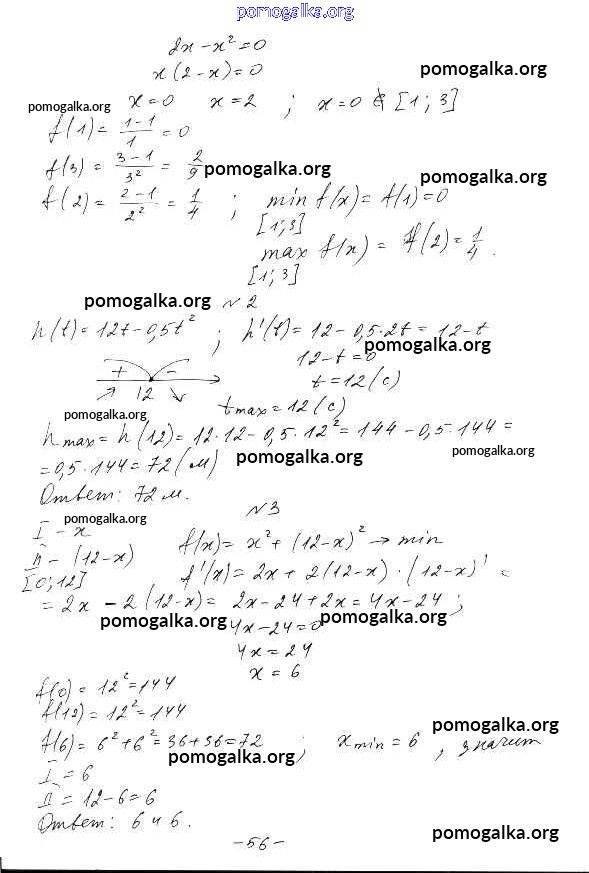 pomogalka.org
2x - x² = 0
x(2 - x) = 0
pomogalka.org
pomogalka.org
x = 0 x = 2 ; x = 0 ∉ [1; 3]
f(1) = (1-1)/1 = 0
f(3) = (3-1)/3² = 2/9
pomogalka.org
pomogalka.org
f(2) = (2-1)/2² = 1/4 ; min f(x) = f(1) = 0
[1;3]
max f(x) = f(2) = 1/4.
[1;3]
pomogalka.org
№2
h(t) = 12t - 0,5t² ; h'(t) = 12 - 0,5·2t = 12 - t
pomogalka.org
12 - t = 0
+ - t = 12 (с)
12
t max = 12 (с)
pomogalka.org
h max = h(12) = 12·12 - 0,5·12² = 144 - 0,5·144 =
pomogalka.org
= 0,5·144 = 72 (м)
pomogalka.org
Ответ: 72 м.
№3
pomogalka.org
I - x
II - (12-x) f(x) = x² + (12-x)² → min
[0; 12] f'(x) = 2x + 2(12-x)·(12-x)' =
= 2x - 2(12-x) = 2x - 24 + 2x = 4x - 24 ;
pomogalka.org pomogalka.org
4x - 24 = 0
4x = 24
x = 6
f(0) = 12² = 144
f(12) = 12² = 144
pomogalka.org
f(6) = 6² + 6² = 36 + 36 = 72 ; x min = 6, значит
pomogalka.org
I = 6
II = 12 - 6 = 6
Ответ: 6 и 6.
pomogalka.org
-56-